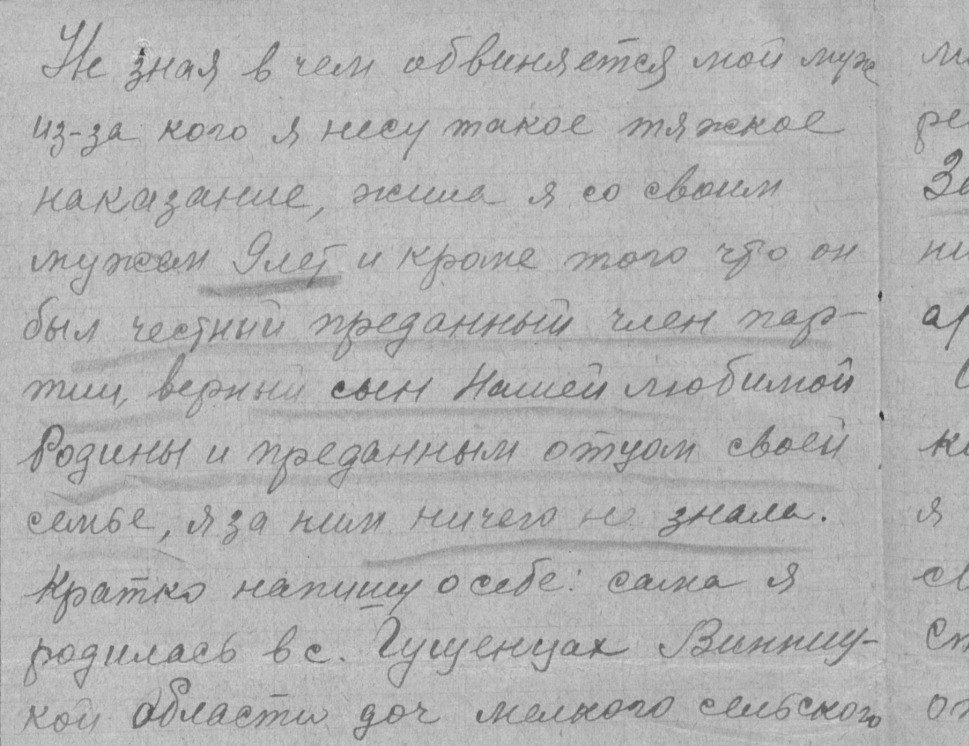 Не зная в чем обвиняется мой муж
из-за кого я несу такое тяжкое
наказание, жила я со своим
мужем 9 лет и кроме того что он
был честный преданный член пар-
тии, верный сын Нашей любимой
Родины и преданным отцом своей
семье, я за ним ничего не знала.
Кратко напишу о себе: сама я
родилась в с. Гущенцах Винниц-
кой области доч мелкого сельского